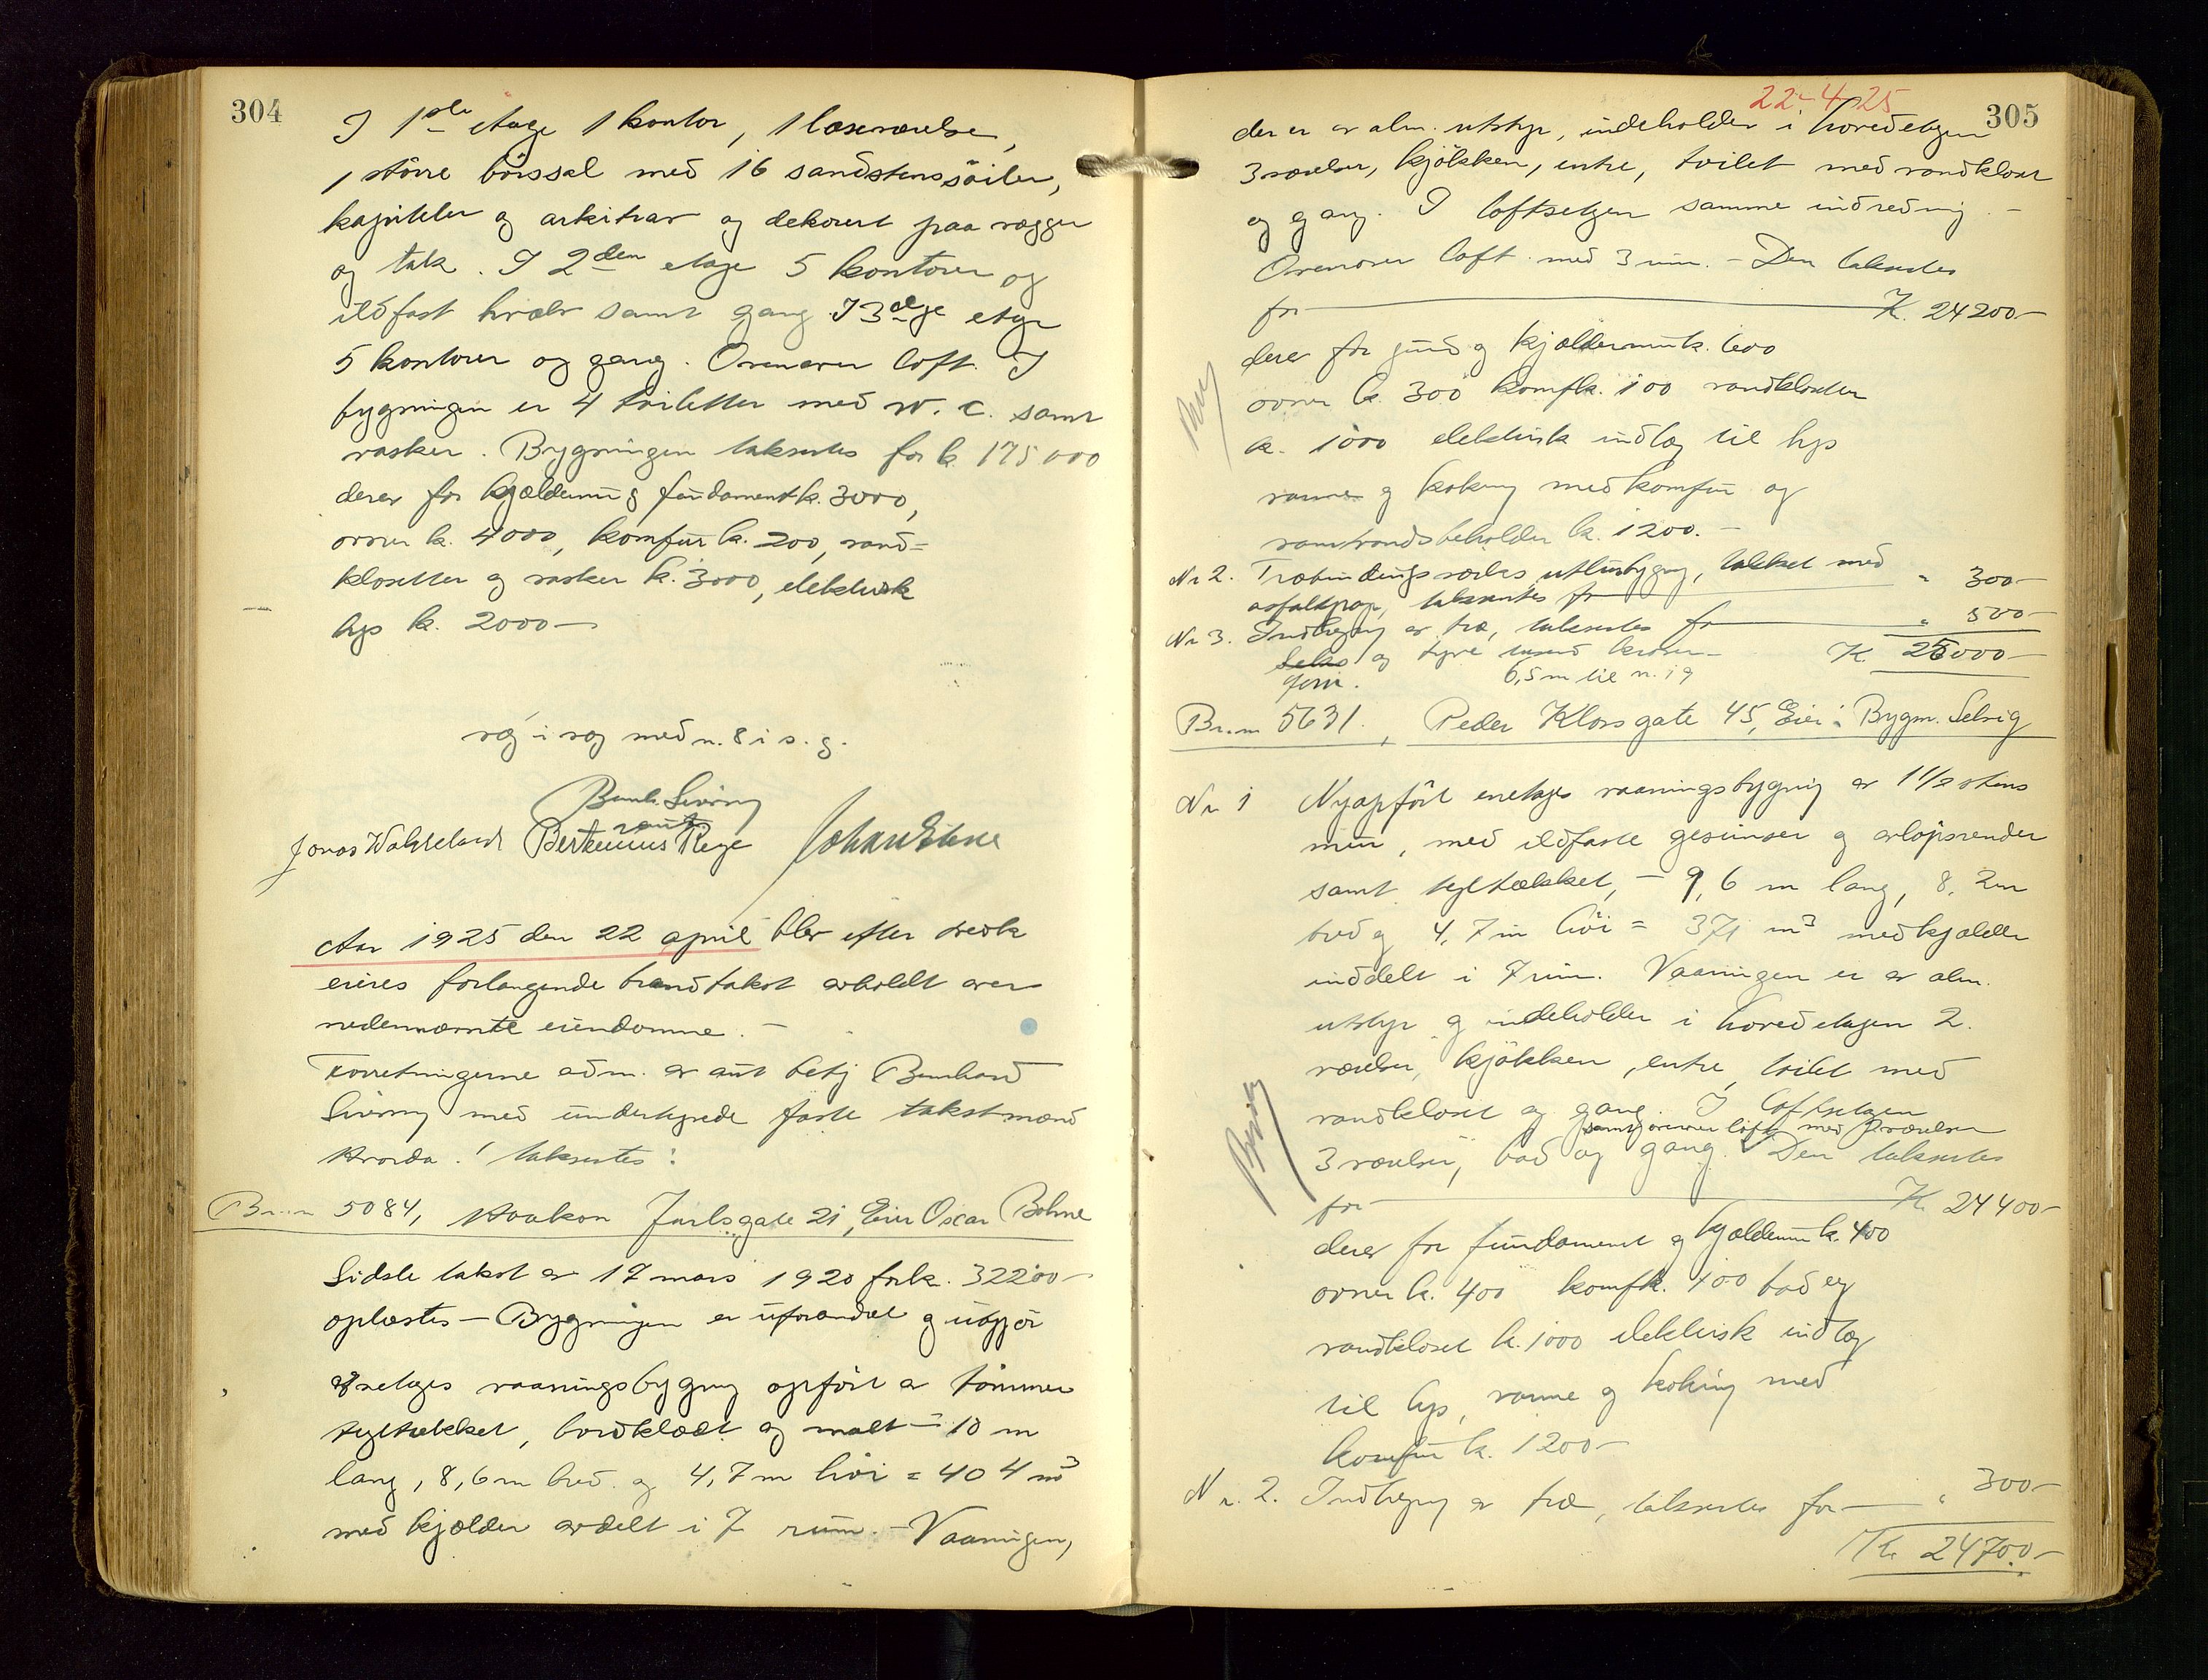 304
I 1ste etage 1 kontor, 1 læseværelse,
1 større börssal med 16 sandstenssöiler,
kapitæler og arkitrav og dekorert paa vægger
og tak. I 2den etage 5 kontorer og
ildfast hvælv samt gang. I 3dje etage
5 kontorer og gang. Ovenover loft. I
bygningen er 4 toiletter med w. c. samt
vasker. Bygningen takseres for k. 175 000
derav for kjældermur og fundament k. 3000,
ovner k. 4000, komfur k. 200, vand-
klosetter og vasker k. 3000, elektrisk
lys k. 2000 —
væg i væg med n. 8 i s. g.
Bernh. Sivring
Jonas Watsteland Berthinius Rege Johan Eltne
Aar 1925 den 22 april blev efter vedk
eieres forlangende brandtakst avholdt over
nedennævnte eiendomme. —
Forretningerne adm. av aut betj Bernhard
Sivring med undertegnede faste takstmænd
Hvorda! takseres:
Br. n 5084, Haakon Jarlsgate 21, Eier Oscar Bohne
Sidste takst av 17 mars 1920 for k. 32200 —
oplæstes — Bygningen er uforandret og utgjör
enetages vaaningsbygning opfört av tömmer
tegltækket, bordklædt og malt — 10 m
lang, 8,6 m bred og 4,7 m höi = 404 m3
med kjælder avdelt i 7 rum. — Vaaningen,
22-4-25
305
der er av alm. utstyr, indeholder i hovedetagen
3 værelser, kjökken, entre, toilet med vandkloset
og gang. I loftsetagen samme indredning. —
Ovenover loft med 3 rum. — Den takseres
for — K. 24200 —
derav for grund og kjældermur k. 600
ovner k. 300 komf k. 100 vandklosetter
k. 1000 elektrisk indlæg til lys
varme og koking med komfur og
varmvandsbeholder k. 1200. —
Nr 2. Træbindingsværks uthusbygning, tækket med
asfaltpap, takseres for — " 300 —
Nr 3. Indhegning av træ, takseres for — " 500 —
Seks og tyve tusend kroner — K 25000 —
fem. 6,5 m til n. 19
Br. n 5631, Peder Klowsgate 45, Eier: Bygm. Selvig
Nr 1 Nyopfört enetages vaaningsbygning av 1 1/2 stens
mur, med ildfaste gesimser og avlöpsrender
samt tegltækket, — 9,6 m lang, 8,2 m
bred og 4,7 m höi = 371 m3 med kjælder
inddelt i 7 rum. Vaaningen er av alm.
utstyr og indeholder i hovedetagen 2.
værelser, kjökken, entre, toilet med
vandkloset og gang. I loftsetagen
samt ovenover loft med 2 værelser
3 værelser, bad og gang. Den takseres
for — K. 24400 —
derav for fundament og kjældermur k. 400
ovner k. 400 komf k. 100 bad og
vandkloset k. 1000 elektrisk indlæg
til lys, varme og koking med
komfur k. 1200 —
Nr. 2. Indhegning av træ, takseres for — " 300 —
K. 24700. —